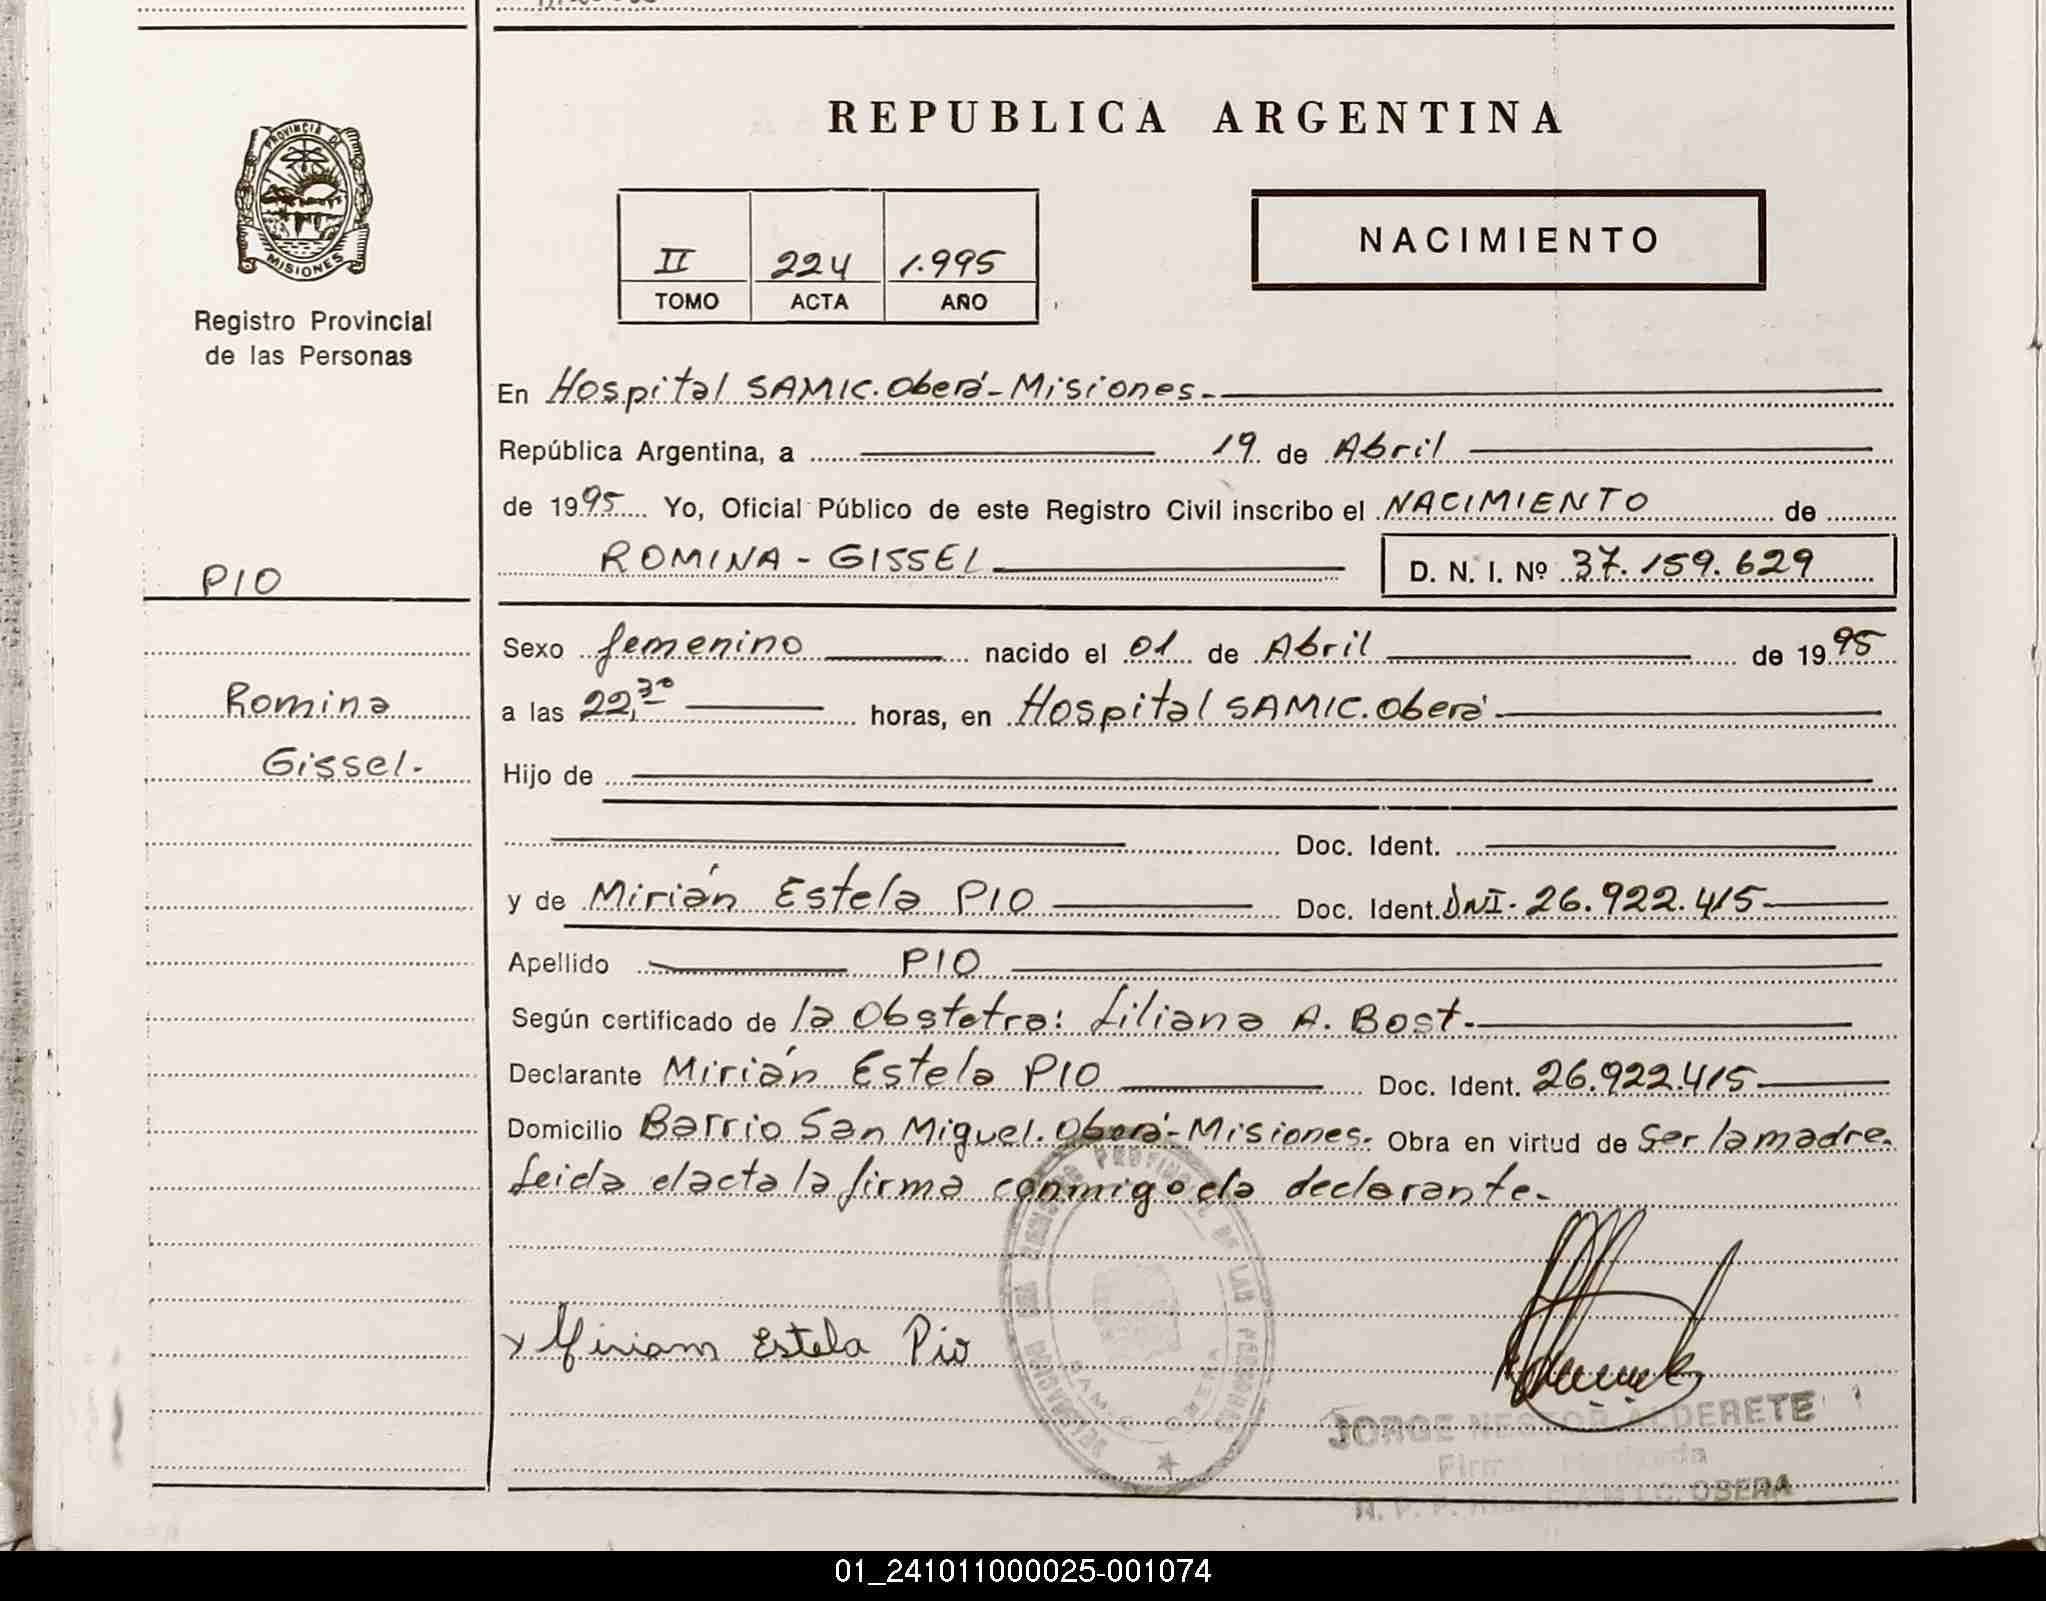 REPUBLICA ARGENTINA
PROVINCIA DE
MISIONES
Registro Provincial
de las Personas
II 224 1.995
TOMO ACTA AÑO
NACIMIENTO
PIO
Romina
Gissel.
En Hospital SAMIC. Oberá - Misiones.
República Argentina, a 19 de Abril
de 1995 Yo, Oficial Público de este Registro Civil inscribo el NACIMIENTO de
ROMINA - GISSEL D. N. I. Nº 37.159.629
Sexo femenino nacido el 01 de Abril de 1995
a las 22,30 horas, en Hospital SAMIC. Oberá
Hijo de
Doc. Ident.
y de Mirián Estela PIO Doc. Ident. DNI. 26.922.415
Apellido PIO
Según certificado de la Obstetra: Liliana A. Bost.
Declarante Mirián Estela PIO Doc. Ident. 26.922.415
Domicilio Barrio San Miguel. Oberá - Misiones. Obra en virtud de Ser la madre.
Leida el acta la firma conmigo la declarante.
x Miriam Estela Pio
JORGE NESTOR ALDERETE
OBERA
01_241011000025-001074